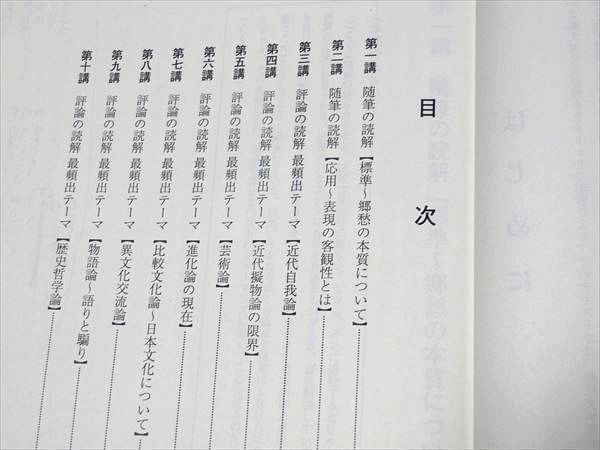 はじめに
目次
第一講 随筆の読解【標準~郷愁の本質について】
第二講 随筆の読解【応用~表現の客観性とは】
第三講 評論の読解 最頻出テーマ【近代自我論】
第四講 評論の読解 最頻出テーマ【近代擬物論の限界】
第五講 評論の読解 最頻出テーマ【芸術論】
第六講 評論の読解 最頻出テーマ【進化論の現在】
第七講 評論の読解 最頻出テーマ【比較文化論~日本文化について】
第八講 評論の読解 最頻出テーマ【異文化交流論】
第九講 評論の読解 最頻出テーマ【物語論~語りと騙り】
第十講 評論の読解 最頻出テーマ【歴史哲学論】